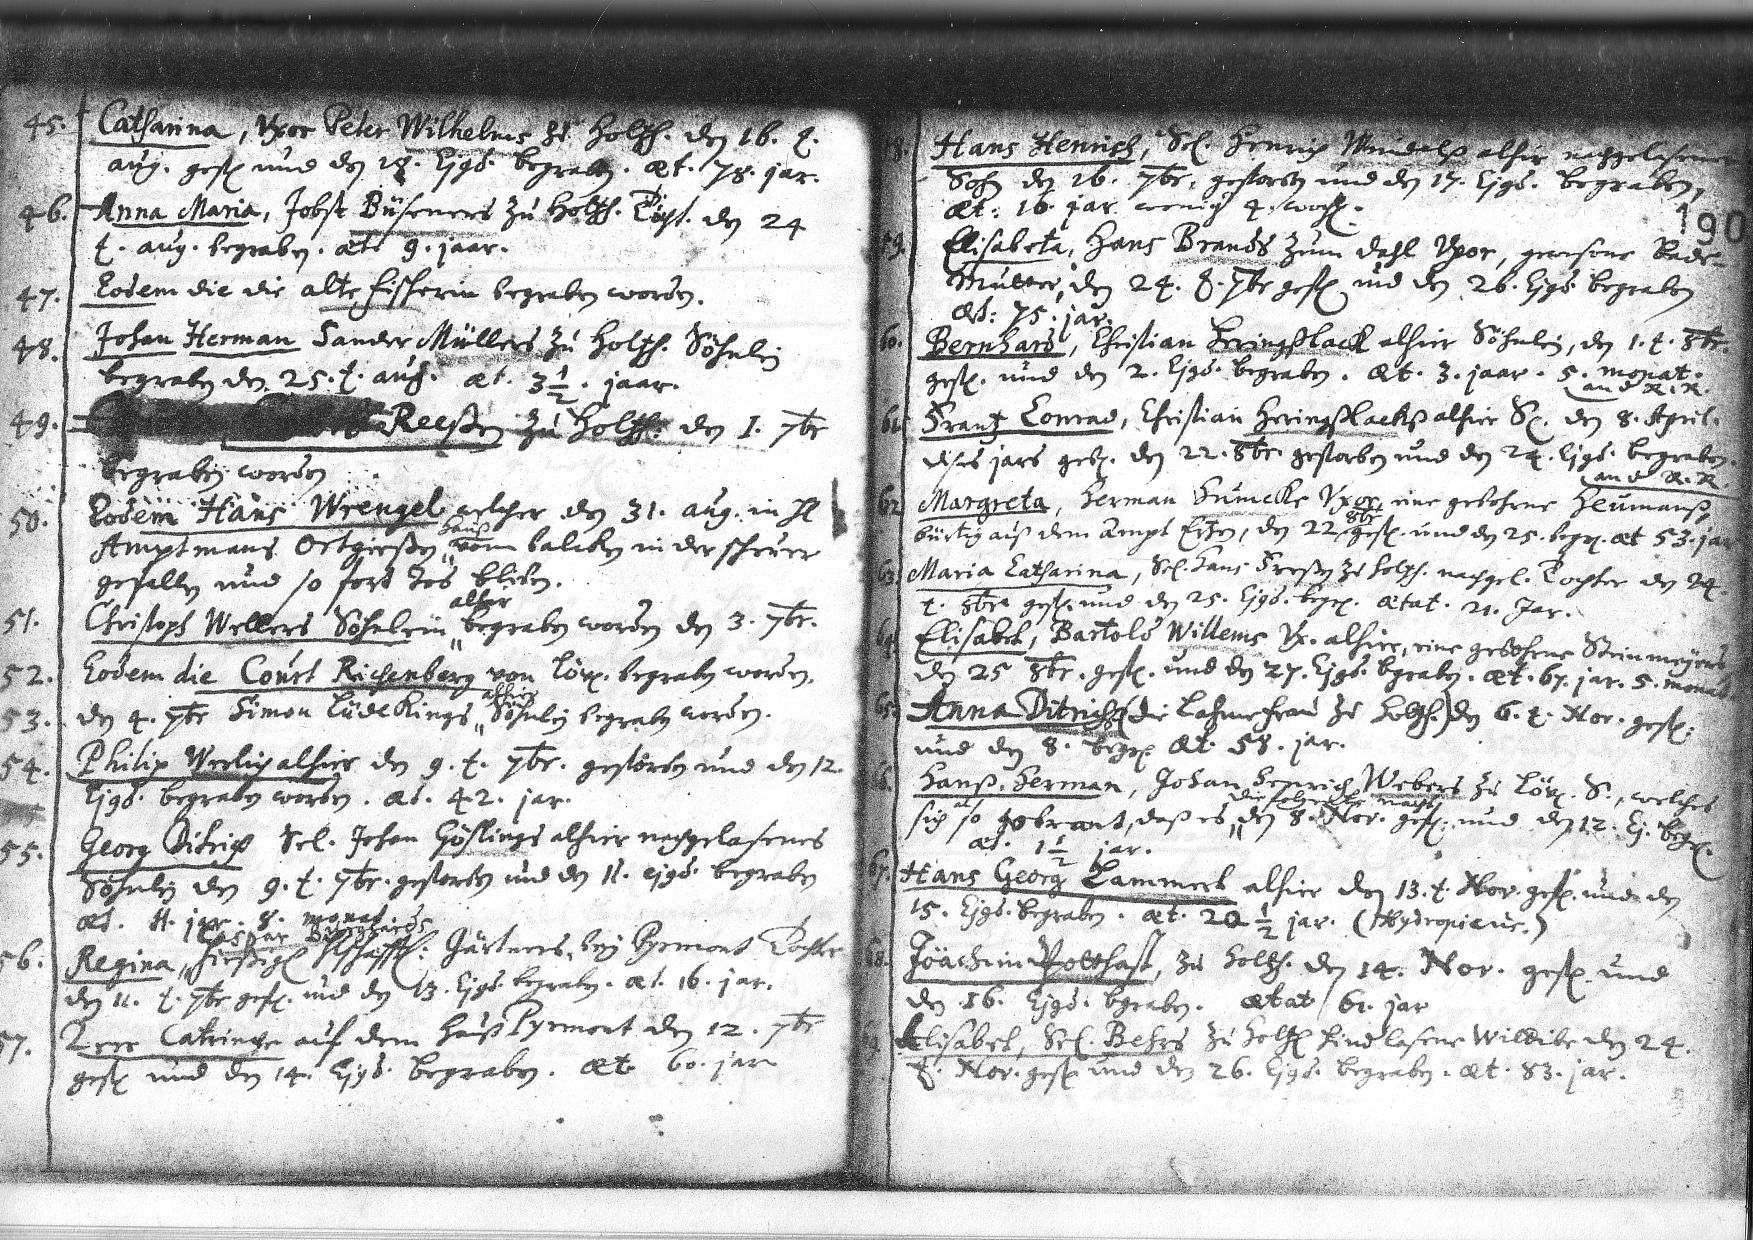 45. Catharina, Uxor Peter Wilhelms zu Holtzh. den 16. t.
aug. gest. und den 18. Ejsd. begraben. æt. 78. jar.
46. Anna Maria, Jobst Büseners zu Holtzh. Tocht. den 24
t. aug. begraben. æt. 9. jaar.
47. Eodem die die alte fischerin begraben worden.
48. Johan Herman Sander Müllers zu Holtzh. Söhnlein
begraben den 25. t. aug. æt. 3 1/2. jaar.
49. Reeßen zu Holtzh. den 1. 7br
begraben worden
50. Eodem Hans Wrengel welcher den 31. aug. in H
Amptmans Ortgiesen hauß vom balcken in der scheuer
gefallen und so fort tod blieben.
51. Christoph Wellers Söhnlein alhier begraben worden den 3. 7br.
52. Eodem die Court Richenberg von Löw. begraben worden.
53. den 4. 7br Simon Lüdekings alhier Söhnlein begraben worden.
54. Philip alhier den 9. t. 7br. gestorben und den 12.
Ejsd. begraben worden. æt. 42. jar.
55. Georg Ditrich Sel. Johan Göslings alhier nachgelasenes
Söhnlein den 9. t. 7br. gestorben und den 11. ejsd. begraben
æt. 11. jar. 8. monat.
56. Regina, Caspar Gärtners bey Pyrmont Tochter
den 11. t. 7br gest. und den 13. Ejsd. begraben. æt. 16. jar.
57. Catringe auf dem Hauß Pyrmont den 12. 7br
gest. und den 14. Ejsd. begraben. æt. 60. jar
Hans Henrich, Sel. Henrich alhier nachgelasener
Sohn den 16. 7br. gestorben und den 17. Ejsd. begraben,
æt. 16 jar wenig 4. woch.
190
59. Elisabeta, Hans Brands zum dahl Uxor, gewesene Bade-
Mutter, den 24. t. 7br gest. und den 26. Ejsd. begraben
æt: 75. jar.
60. Bernhard, Christian Heringslack alhier Söhnlein, den 1. t. 8br.
gest. und den 2. Ejsd. begraben. æt. 3. jaar. 5. monat.
and R.R.
61. Frantz Conrad, Christian Heringslacks alhier S. den 8. April.
dises jars geb. den 22. 8br gestorben und den 24. Ejsd. begraben.
and R.R.
62. Margreta, Herman Uxor, eine gebohrne Heumanß
bürtig auß dem Ampt, den 22. 8br gest. und den 25. begr. æt 53. jar
63. Maria Catharina, Sel. Hans Fresen zu Holtzh. nachgel. Tochter den 24.
t. 8br gest. und den 25. Ejsd. begr. ætat. 21. Jar.
64. Elisabet, Bartold Willems Ux. alhier, eine gebohrne Steinmeyers
den 25 8br. gest. und den 27. Ejsd. bgraben. æt. 67. jar. 5. monat
65. Anna Ditrichs (die Lahme frau zu Holtzh.) den 6. t. Nor. gest.
und den 8. begr. æt. 58. jar.
66. Hanß Herman, Johan Henrich Webers zu Löw. S., welches
sich so gebrant, daß es die folgende nacht den 8. Nor. gest. und den 12. Ej. begr.
æt. 1 1/2 jar.
67. Hans Georg Lammert alhier den 13. t. Nor. gest. und den
15. Ejsd. begraben. æt. 20 1/2 jar. (Hydropicus.)
68. Joachim Potthast, zu Holtzh. den 14. Nor. gest. und
den 16. Ejsd. bgraben. ætat 61. jar
Elisabet, Sel. Behrs zu Holtzh. hindlasene Wittibe den 24.
t. Nor. gest. und den 26. Ejsd. begraben. æt. 83. jar.